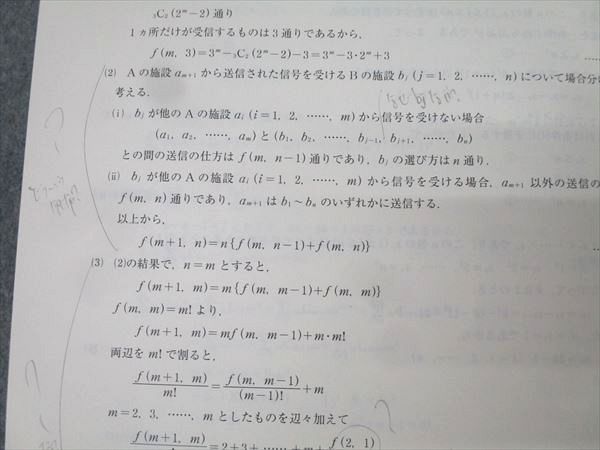 ₃C₂(2ᵐ−2)通り
1ヵ所だけが受信するものは3通りであるから,
f(m, 3)=3ᵐ−₃C₂(2ᵐ−2)−3=3ᵐ−3·2ᵐ+3
(2) Aの施設 aₘ₊₁ から送信された信号を受けるBの施設 bⱼ (j=1, 2, ……, n)について場合分
考える.
(i) bⱼ が他のAの施設 aᵢ (i=1, 2, ……, m)から信号を受けない場合
(a₁, a₂, ……, aₘ)と(b₁, b₂, ……, bⱼ₋₁, bⱼ₊₁, ……, bₙ)
との間の送信の仕方は f(m, n−1)通りであり, bⱼ の選び方は n 通り.
(ii) bⱼ が他のAの施設 aᵢ (i=1, 2, ……, m)から信号を受ける場合, aₘ₊₁ 以外の送信の
f(m, n)通りであり, aₘ₊₁ は b₁~bₙ のいずれかに送信する.
以上から,
f(m+1, n)=n{f(m, n−1)+f(m, n)}
(3) (2)の結果で, n=m とすると,
f(m+1, m)=m{f(m, m−1)+f(m, m)}
f(m, m)=m! より,
f(m+1, m)=mf(m, m−1)+m·m!
両辺を m! で割ると,
f(m+1, m)/m!=f(m, m−1)/(m−1)!+m
m=2, 3, ……, m としたものを辺々加えて
f(m+1, m)=2+3+……+m+f(2, 1)